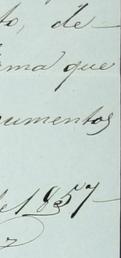 to, de
rma que
umentos
del 1857